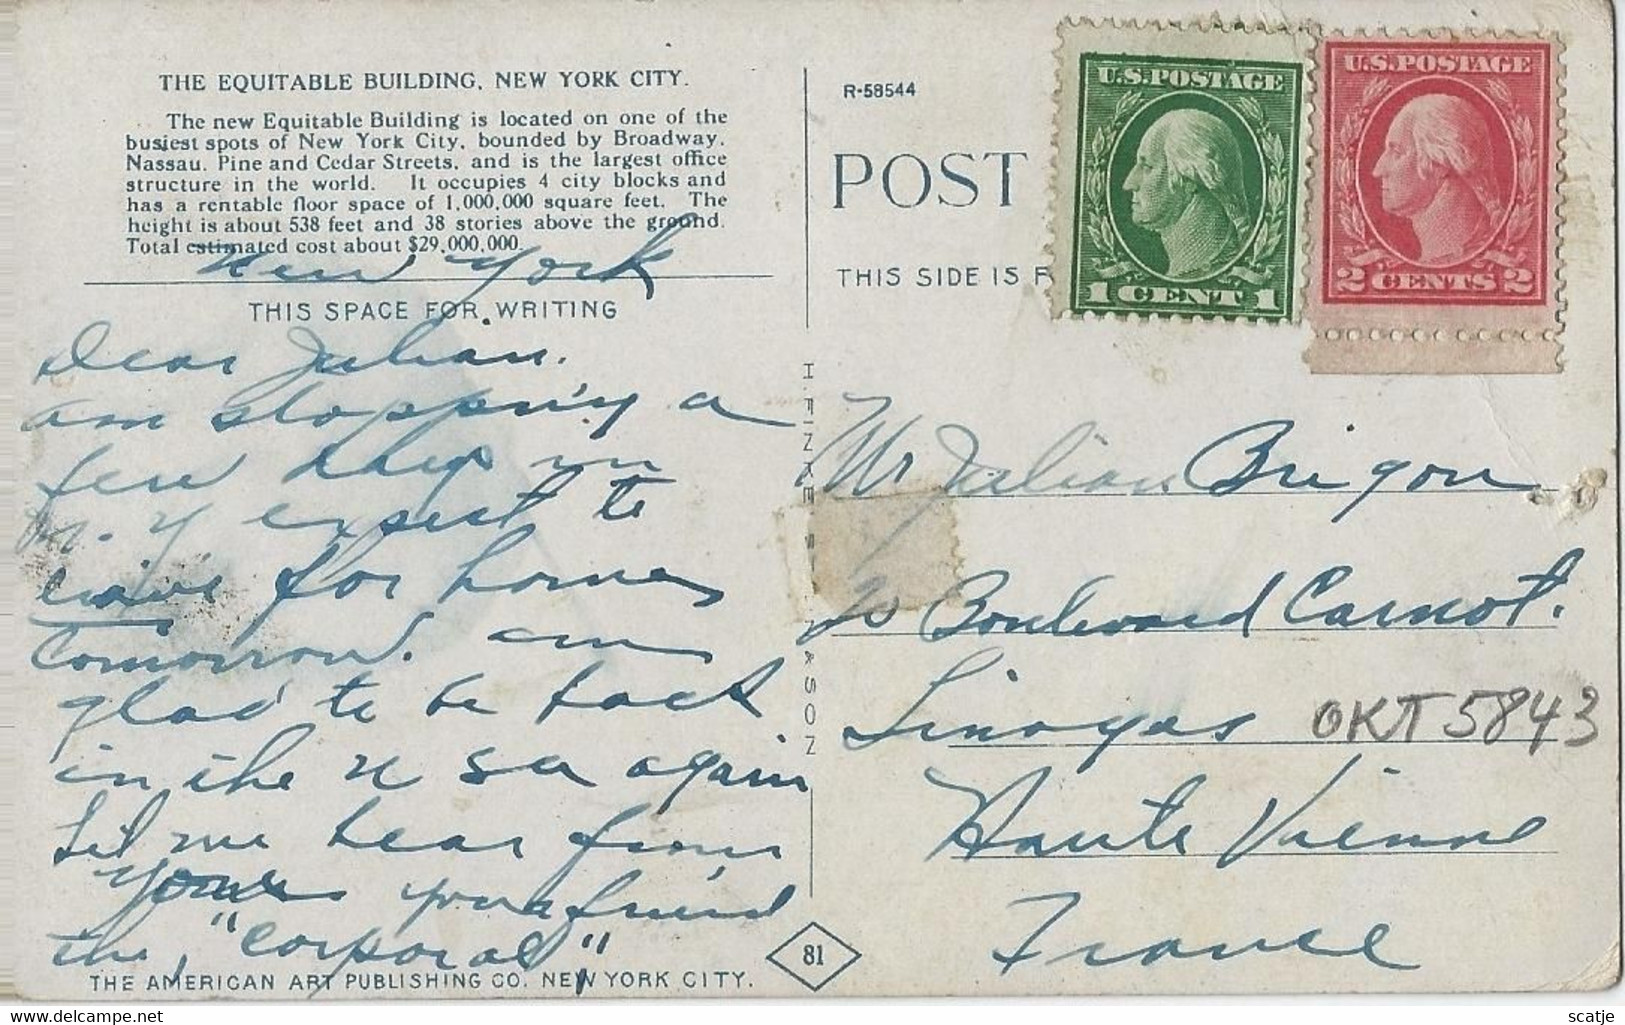 THE EQUITABLE BUILDING, NEW YORK CITY.
The new Equitable Building is located on one of the
busiest spots of New York City, bounded by Broadway,
Nassau, Pine and Cedar Streets, and is the largest office
structure in the world. It occupies 4 city blocks and
has a rentable floor space of 1,000,000 square feet. The
height is about 538 feet and 38 stories above the ground.
Total estimated cost about $29,000,000.
New York
THIS SPACE FOR WRITING
Dear Julian.
am stopping a
few days in
n. y expect to
leave for home
Tomorrow. am
glad to be back
in the u sa again
Let me hear from
Yours your friend
the, "Corporal"
THE AMERICAN ART PUBLISHING CO. NEW YORK CITY.
81
H. FINKELSTEIN & SON
R-58544
POST
THIS SIDE IS F
U.S. POSTAGE
1 CENT 1
U.S. POSTAGE
2 CENTS 2
Mr Julian Brigou
Boulevard Carnot.
Limoges
OKT 5843
Haute Vienne
France
next.delcampe.net
scatje